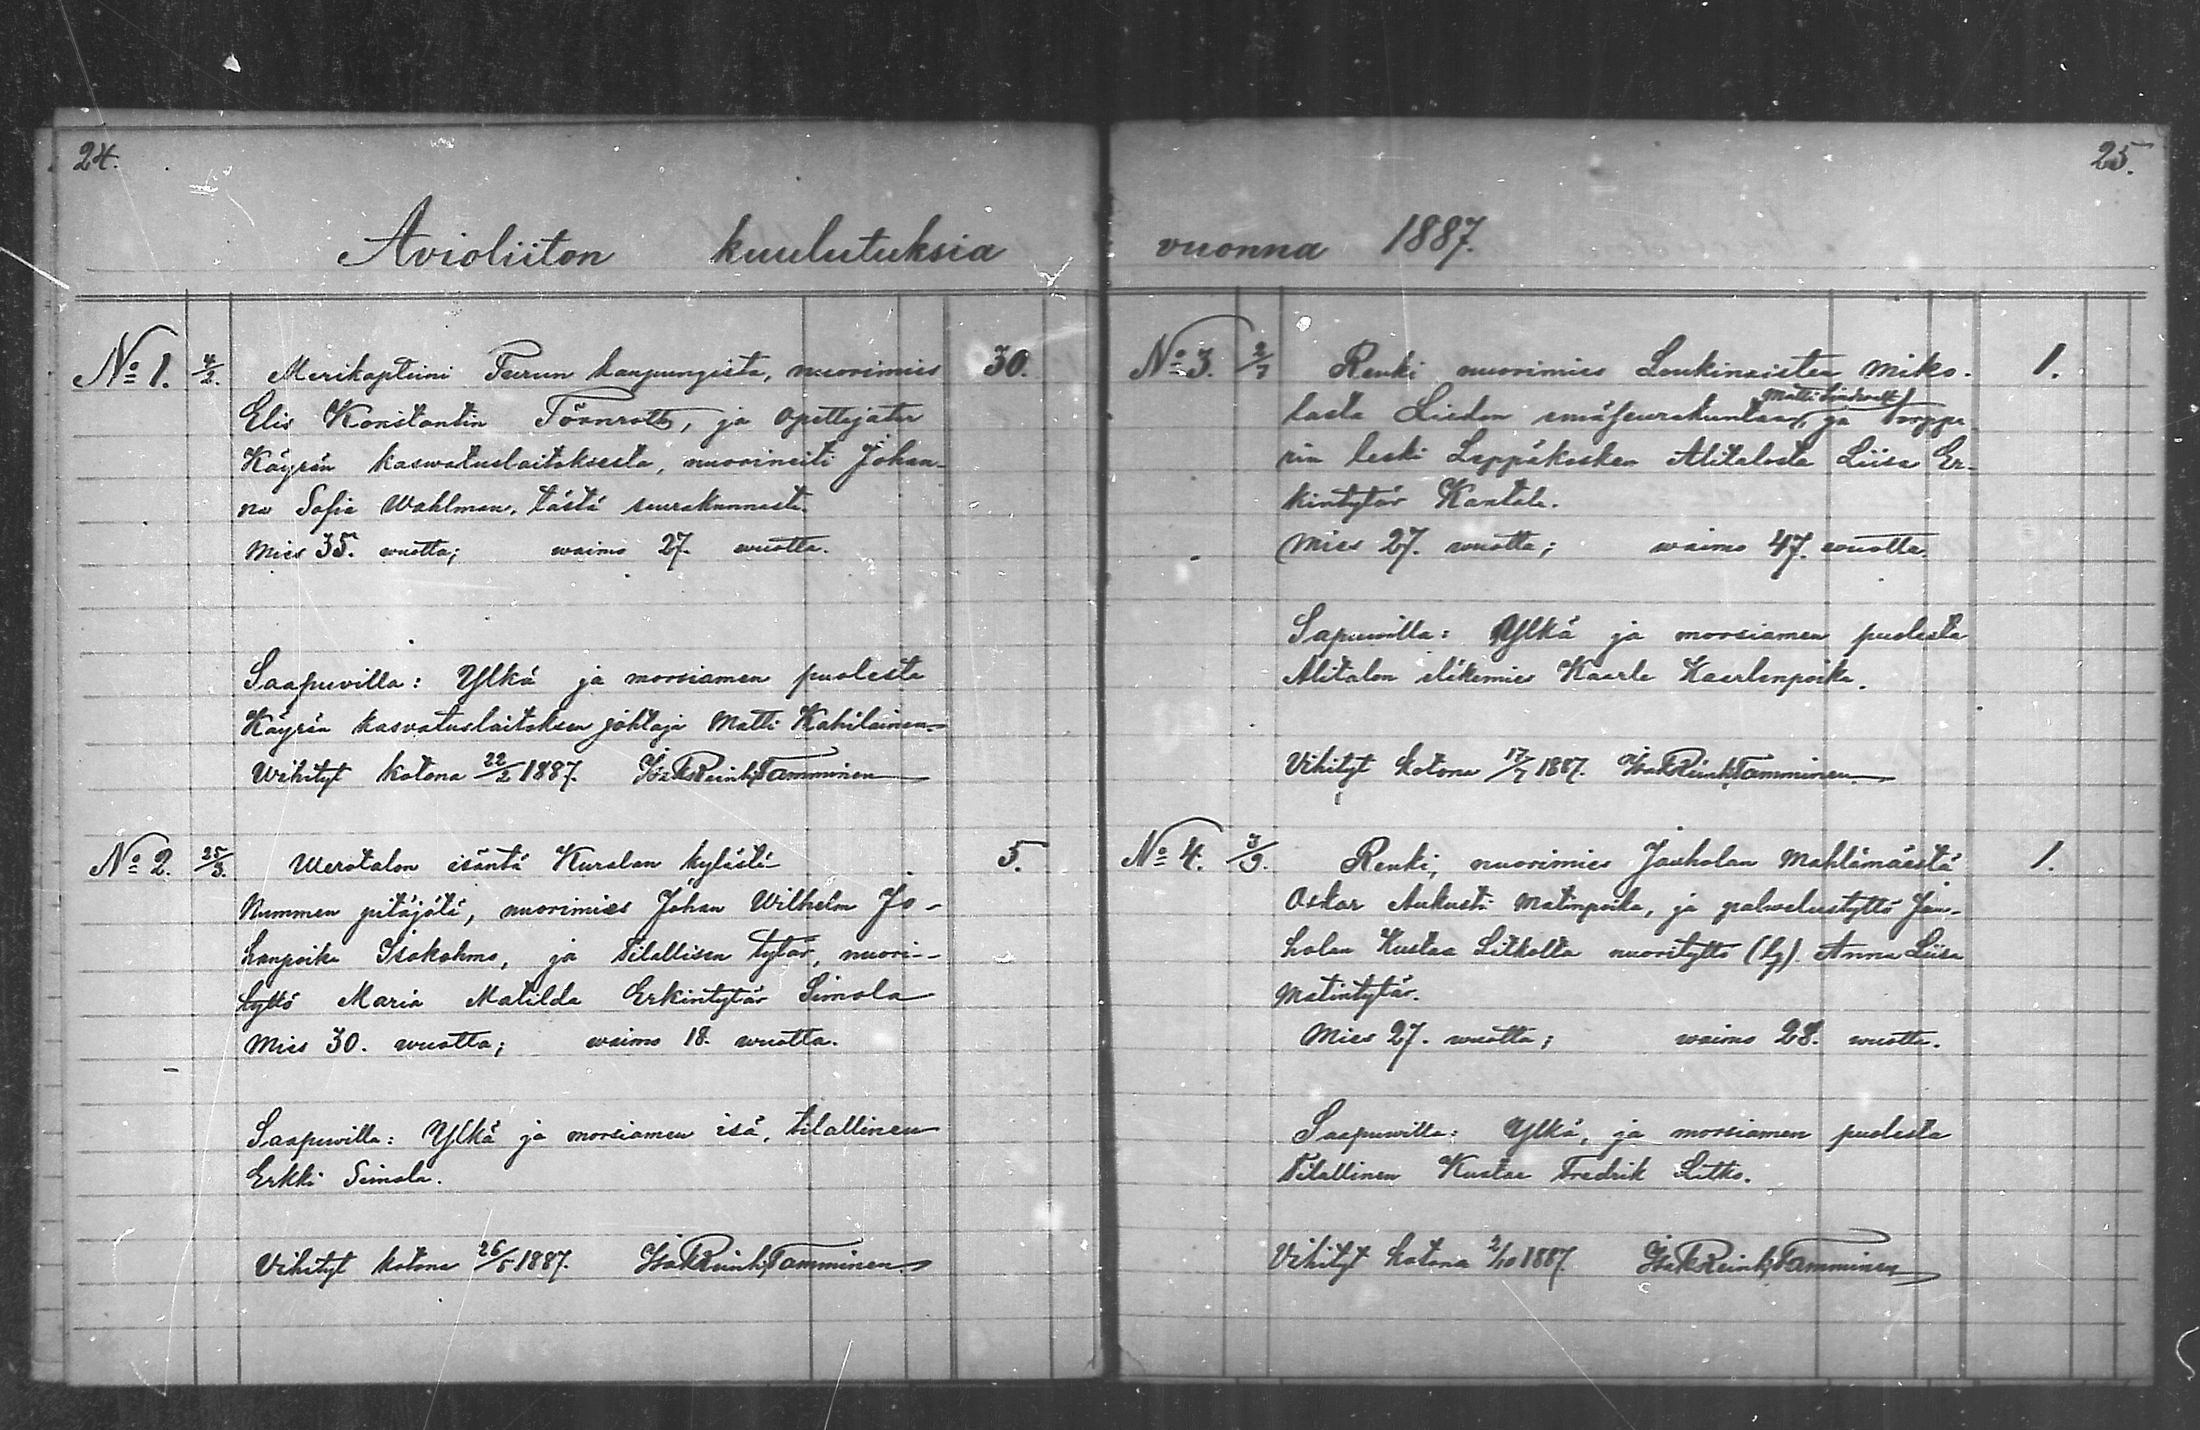 24.
Avioliiton kuulutuksia
No 1. 4/2. Merikapteini Turun kaupungista, nuorimies 30.
Elis Konstantin Törnroth, ja opettajatar
Käyrän kaswatuslaitoksesta, nuorineiti Johan-
na Sofia Wahlman, tästä seurakunnasta.
Mies 35. wuotta; waimo 27. wuotta.
Saapuvilla: Ylkä ja morsiamen puolesta
Käyrän kasvatuslaitoksen johtaja Matti Kahilainen
Wihityt kotona 22/2 1887. Isak Reinh. Tamminen
No 2. 25/3. Werotalon isäntä Kuralan kylästä 5.
Nummen pitäjätä, nuorimies Johan Wilhelm Jo-
hanpoika Isokahmo, ja tilallisen tytär, nuori-
tyttö Maria Matilda Erkintytär Simola
Mies 30. wuotta; waimo 18. wuotta.
Saapuwilla: Ylkä ja morsiamen isä, tilallinen
Erkki Simola.
Vihityt kotona 26/5 1887. Isak Reinh. Tamminen
25.
vuonna 1887.
No 3. 2/7 Renki nuorimies Loukinaisten Miko- 1.
Matti Lindroos
lasta Liedon emäseurakuntaa, ja torppa-
rin leski Leppäkosken Alitalosta Liisa Er-
kintytär Kantola.
Mies 27. wuotta; waimo 47. wuotta.
Sapuwilla: Ylkä ja morsiamen puolesta
Alitalon eläkemies Kaarle Kaarlenpoika.
Vihityt kotona 17/7 1887. Isak Reinh. Tamminen
No 4. 3/9. Renki, nuorimies Jauholan Mahlamäestä 1.
Oskar Aukusti Matinpoika, ja palwelustyttö Jau-
holan Kustaa Litkolta nuorityttö (lg). Anna Liisa
Matintytär.
Mies 27. wuotta; waimo 28. wuotta.
Saapuwilla: Ylkä, ja morsiamen puolesta
Tilallinen Kustaa Fredrik Litko.
Vihityt kotona 2/10 1887 Isak Reinh. Tamminen